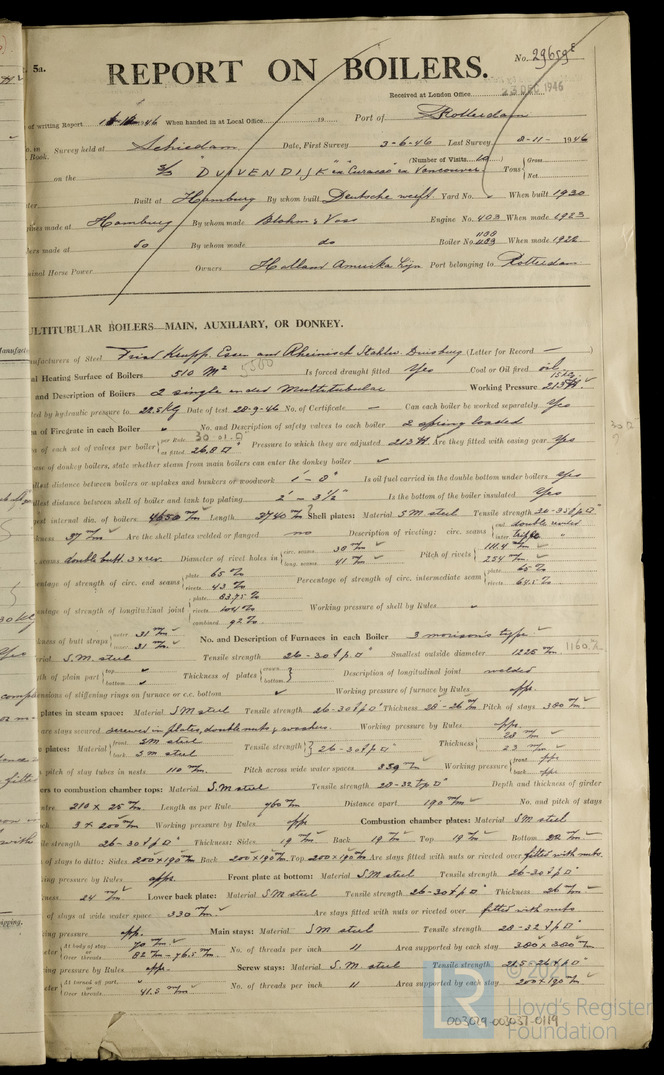 5a.
REPORT ON BOILERS.
No. 29659E
Received at London Office 23 DEC 1946
of writing Report 46 When handed in at Local Office 19 Port of Rotterdam
Survey held at Schiedam Date, First Survey 3-6-46 Last Survey 2-11-1946
Book. (Number of Visits 10
on the S/S "DUIVENDIJK" Tons { Gross Net
Built at Hamburg By whom built Deutsche werft Yard No. When built 1930
made at Hamburg By whom made Blohm & Voss Engine No. 403 When made 1923
made at do By whom made do Boiler No. When made 1922
Horse Power Owners Holland Amerika Lijn Port belonging to Rotterdam
MULTITUBULAR BOILERS—MAIN, AUXILIARY, OR DONKEY.
of Steel Fried Krupp. Essen and Rheinisch Stahlw. Duisburg (Letter for Record — )
Heating Surface of Boilers 510 M² 5500 Is forced draught fitted Yes Coal or Oil fired oil
and Description of Boilers 2 single ended Multitubular Working Pressure 213 lb
by hydraulic pressure to 22.5 kg Date of test 28-9-46 No. of Certificate — Can each boiler be worked separately Yes
of Firegrate in each Boiler No. and Description of safety valves to each boiler 2 spring loaded
of each set of valves per boiler { per Rule 30.01 as fitted 26.8 Pressure to which they are adjusted 213 lb. Are they fitted with easing gear Yes
of donkey boilers, state whether steam from main boilers can enter the donkey boiler
distance between boilers or uptakes and bunkers or woodwork 1'-8" Is oil fuel carried in the double bottom under boilers Yes
distance between shell of boiler and tank top plating 2'-3½" Is the bottom of the boiler insulated Yes
internal dia. of boilers 4650 m/m Length 3740 m/m Shell plates: Material S.M steel Tensile strength
37 m/m Are the shell plates welded or flanged no Description of riveting: circ. seams { end double riveted inter. triple "
seams double butt. 3 x rev. Diameter of rivet holes in { circ. seams 38 m/m long. seams 41 m/m Pitch of rivets { 111.4 m/m 254 m/m
of strength of circ. end seams { plate 65% rivets 43% Percentage of strength of circ. intermediate seam { plate 65% rivets 64.5%
of strength of longitudinal joint { plate 83.75% rivets 104% combined 92% Working pressure of shell by Rules
of butt straps { outer 31 m/m inner 31 m/m No. and Description of Furnaces in each Boiler 3 morison's type
S.M steel Tensile strength 26-30 t.p.□" Smallest outside diameter 1225 m/m 1160 m/m
of plain part { top bottom Thickness of plates { crown bottom Description of longitudinal joint welded
of stiffening rings on furnace or c.c. bottom Working pressure of furnace by Rules appr.
plates in steam space: Material S M steel Tensile strength 26-30 t p □" Thickness 28-26 m/m Pitch of stays 380 m/m
are stays secured screwed in plates, double nuts & washers. Working pressure by Rules appr.
plates: Material { front SM steel back S.m steel Tensile strength } 26-30 t p □" Thickness { 28 m/m 23 m/m
pitch of stay tubes in nests 110 m/m Pitch across wide water spaces 359 m/m Working pressure { front appr back appr
to combustion chamber tops: Material S.M steel Tensile strength 28-32 t p □" Depth and thickness of girder
210 x 25 m/m Length as per Rule 760 m/m Distance apart 190 m/m No. and pitch of stays
3 x 200 m/m Working pressure by Rules appr Combustion chamber plates: Material S M steel
strength 26-30 t p □" Thickness: Sides 19 m/m Back 19 m/m Top 19 m/m Bottom 22 m/m
of stays to ditto: Sides 200x190 m/m Back 200x190 m/m Top 200x190 m/m Are stays fitted with nuts or riveted over fitted with nuts
pressure by Rules appr. Front plate at bottom: Material S.M steel Tensile strength 26-30 t p
24 m/m Lower back plate: Material S M steel Tensile strength 26-30 t p □" Thickness 26 m/m
of stays at wide water space 330 m/m Are stays fitted with nuts or riveted over fitted with nuts
pressure appr. Main stays: Material S M steel Tensile strength 28-32 t p □"
{ At body of stay 70 m/m Over threads 82 m/m - 76.5 m/m No. of threads per inch 11 Area supported by each stay 380 x 380 m/m
pressure by Rules appr. Screw stays: Material S.M steel Tensile strength
{ At turned off part Over threads 41.3 m/m No. of threads per inch 11 Area supported by each stay 200x190 m/m
© 2021
LR
Lloyd's Register
Foundation
003029-003037-0119